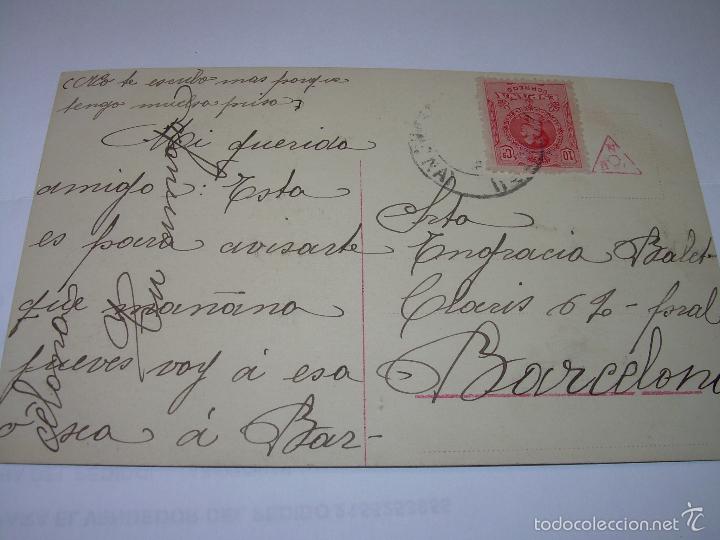 no te escribo mas porque
tengo mucha prisa
Mi querida
amiga: Esta
es para avisarte
que mañana
jueves voy á esa
ó sea á Bar-
celona
Srta
Engracia Balcet
Claris 62-pral
Barcelona
CORREOS
10 CS
todocoleccion.net